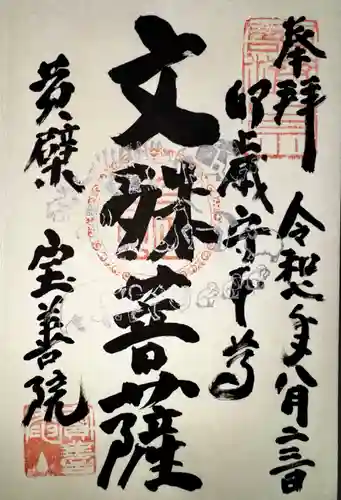 奉拝
令和元年八月二三日
卯歳守本尊
文殊菩薩
黄檗
宝善院